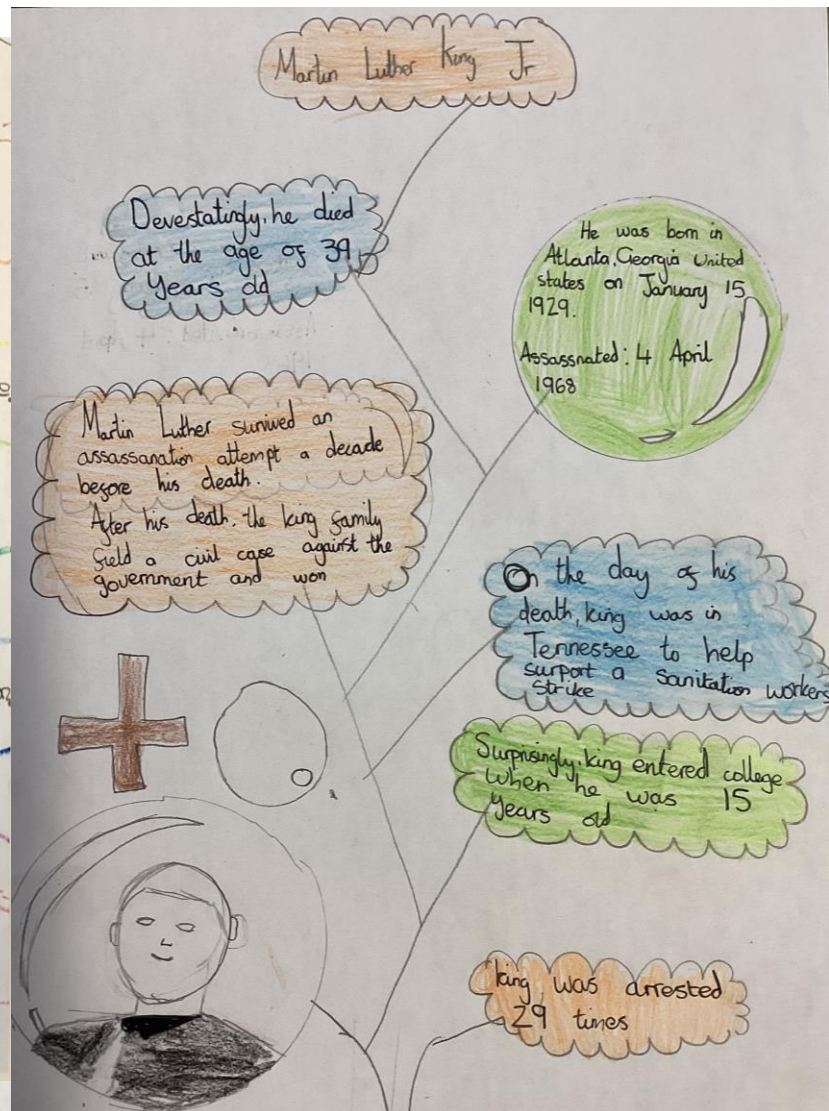 Martin Luther King Jr
Devestatingly, he died
at the age of 39
Years old
He was born in
Atlanta, Georgia United
states on January 15
1929.
Assassnated: 4 April
1968
Martin Luther survived an
assassanation attempt a decade
before his death.
After his death, the king family
field a civil case against the
government and won
On the day of his
death, king was in
Tennessee to help
surport a sanitation workers
strike
Surprisingly, king entered college
when he was 15
years old
king was arrested
29 times